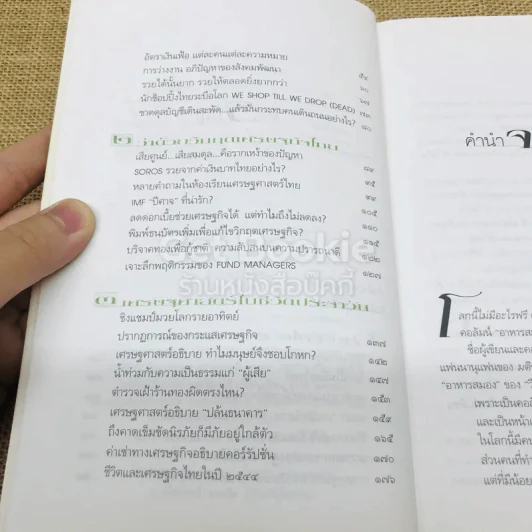 อัตราเงินเฟ้อ แต่ละคนแต่ละความหมาย
การว่างงาน อภิปัญหาของสังคมพัฒนา ๕๔
รวยได้นั้นยาก รวยให้ตลอดยิ่งยากกว่า ๖๐
นักช็อปปิ้งไทยระบือโลก WE SHOP TILL WE DROP (DEAD) ๖๗
ขาดดุลบัญชีเดินสะพัด...แล้วมันกระทบคนเดินถนนอย่างไร? ๘๐
๒ ว่าด้วยวิกฤตเศรษฐกิจไทย
เสียศูนย์...เสียสมดุล...คือรากเหง้าของปัญหา
SOROS รวยจากค่าเงินบาทไทยอย่างไร? ๘๙
หลายคำถามในห้องเรียนเศรษฐศาสตร์ไทย ๙๕
IMF "ปีศาจ" ที่น่ารัก? ๙๙
ลดดอกเบี้ยช่วยเศรษฐกิจได้ แต่ทำไมถึงไม่ลดลง? ๑๐๕
พิมพ์ธนบัตรเพิ่มเพื่อแก้ไขวิกฤตเศรษฐกิจ? ๑๑๐
บริจาคทองเพื่อกู้ชาติ ความสับสนบนความปรารถนาดี ๑๑๕
เจาะลึกพฤติกรรมของ FUND MANAGERS ๑๒๒
๑๒๗
GetBookie
ร้านหนังสือบุ๊คกี้
๓ เศรษฐศาสตร์ในชีวิตประจำวัน
ชิงแชมป์มวยโลกรายอาทิตย์
ปรากฏการณ์ของกระแสเศรษฐกิจ ๑๓๗
เศรษฐศาสตร์อธิบาย ทำไมมนุษย์จึงชอบโกหก? ๑๔๒
น้ำท่วมกับความเป็นธรรมแก่ "ผู้เสีย" ๑๔๗
ตำรวจเฝ้าร้านทองผิดตรงไหน? ๑๕๓
เศรษฐศาสตร์อธิบาย "ปล้นธนาคาร" ๑๕๙
ถึงคาดเข็มขัดนิรภัยก็มีภัยอยู่ใกล้ตัว ๑๖๕
ค่าเช่าทางเศรษฐกิจอธิบายคอร์รัปชั่น ๑๗๐
ชีวิตและเศรษฐกิจไทยในปี ๒๕๔๔ ๑๗๖
คำนำ
โลกนี้ไม่มีอะไรฟรี
คอลัมน์ "อาหารสมอ
ชื่อผู้เขียนและคอ
แฟนนานุแฟนของ มติ
"อาหารสมอง" ของ "วี
เพราะเป็นคอลั
และเป็นหน้าเ
ในโลกนี้มีคน
ส่วนคนที่ทำ
แต่ที่มีน้อย